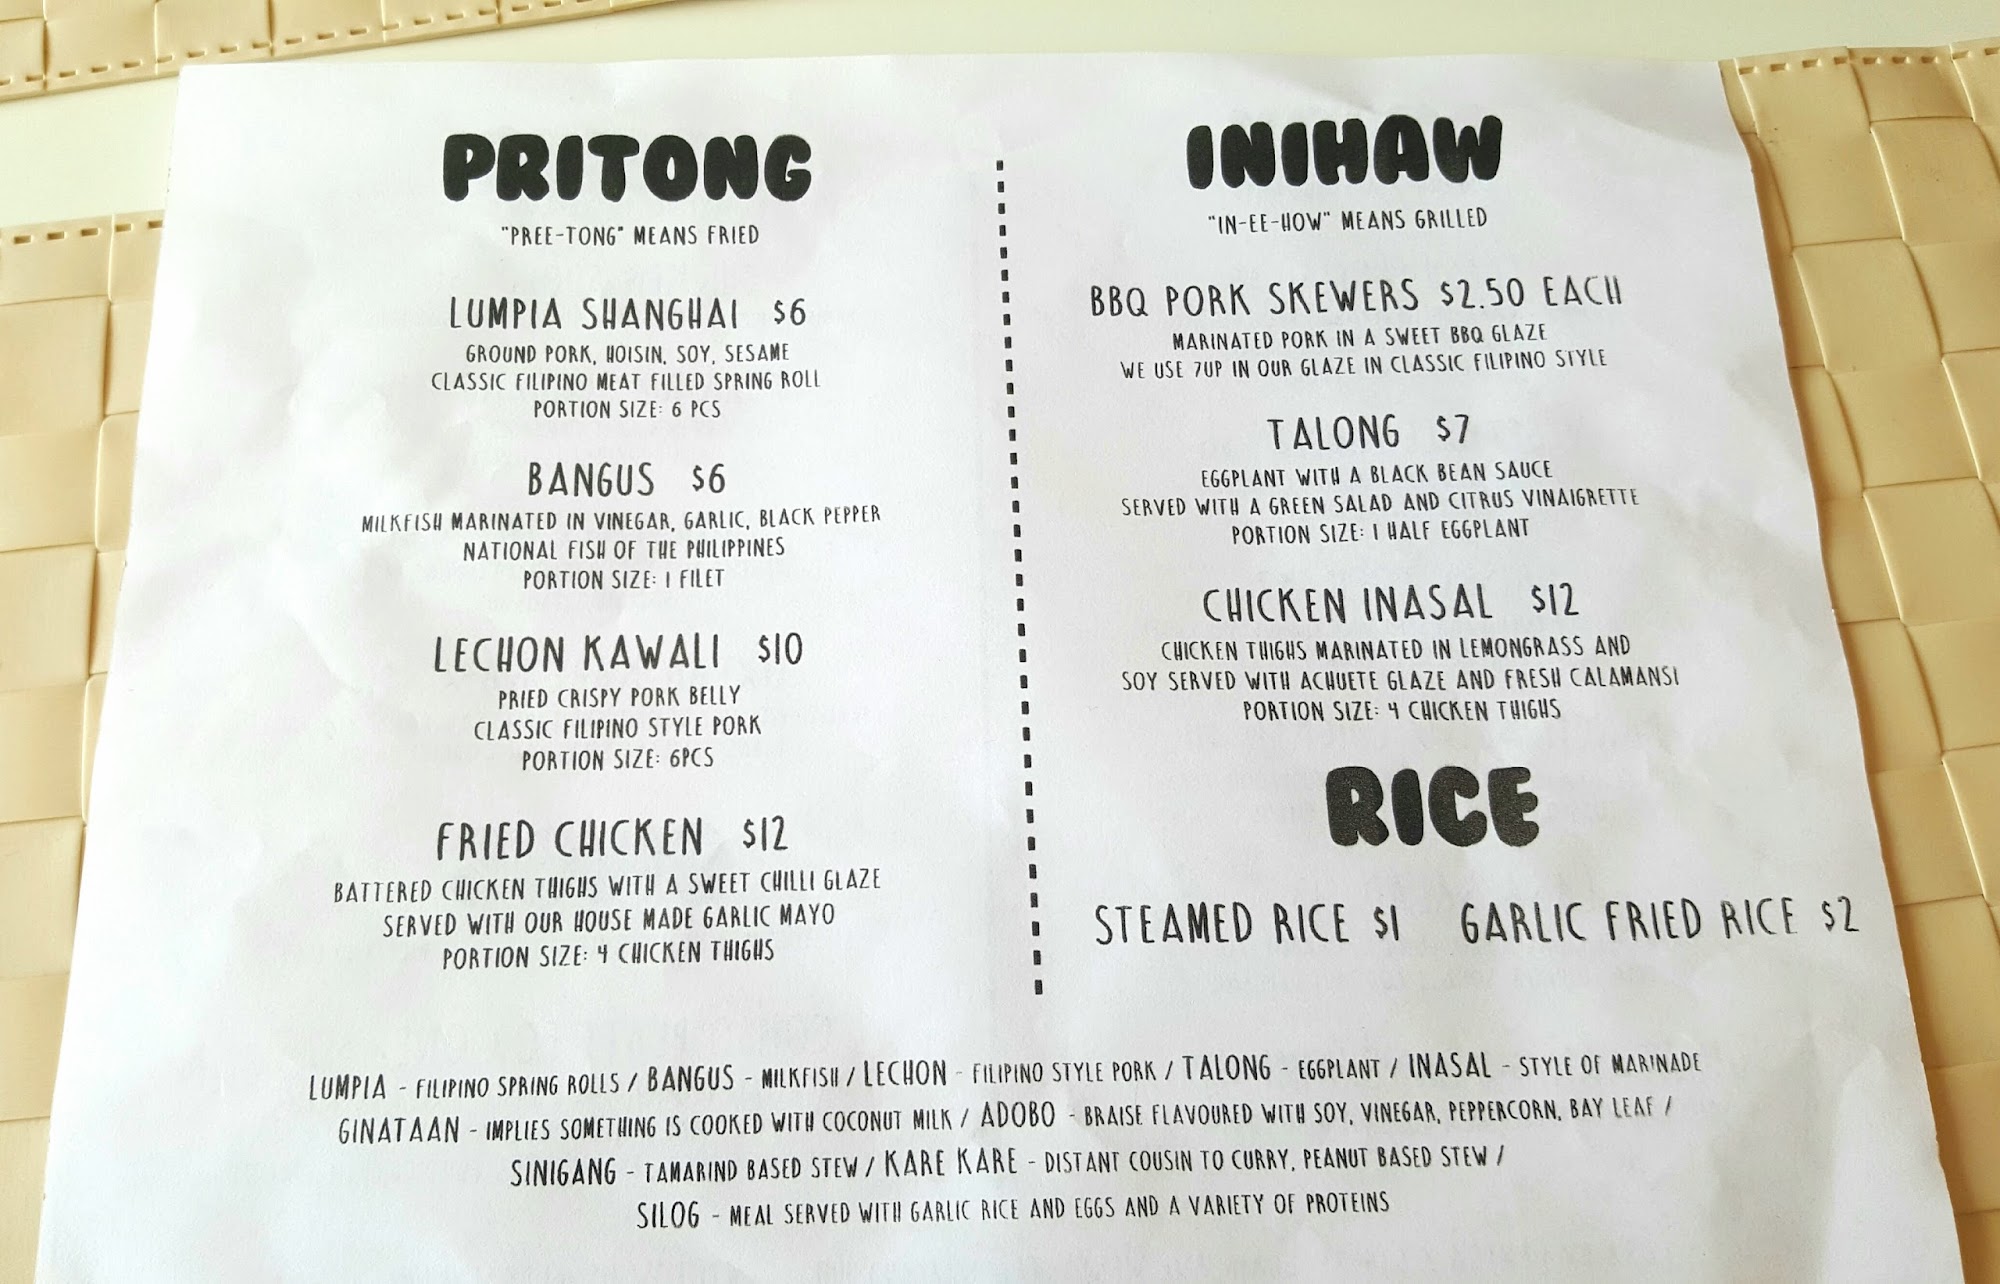 PRITONG
"PREE-TONG" MEANS FRIED
LUMPIA SHANGHAI $6
GROUND PORK, HOISIN, SOY, SESAME
CLASSIC FILIPINO MEAT FILLED SPRING ROLL
PORTION SIZE: 6 PCS
BANGUS $6
MILKFISH MARINATED IN VINEGAR, GARLIC, BLACK PEPPER
NATIONAL FISH OF THE PHILIPPINES
PORTION SIZE: 1 FILET
LECHON KAWALI $10
PRIED CRISPY PORK BELLY
CLASSIC FILIPINO STYLE PORK
PORTION SIZE: 6PCS
FRIED CHICKEN $12
BATTERED CHICKEN THIGHS WITH A SWEET CHILLI GLAZE
SERVED WITH OUR HOUSE MADE GARLIC MAYO
PORTION SIZE: 4 CHICKEN THIGHS
INIHAW
"IN-EE-HOW" MEANS GRILLED
BBQ PORK SKEWERS $2.50 EACH
MARINATED PORK IN A SWEET BBQ GLAZE
WE USE 7UP IN OUR GLAZE IN CLASSIC FILIPINO STYLE
TALONG $7
EGGPLANT WITH A BLACK BEAN SAUCE
SERVED WITH A GREEN SALAD AND CITRUS VINAIGRETTE
PORTION SIZE: 1 HALF EGGPLANT
CHICKEN INASAL $12
CHICKEN THIGHS MARINATED IN LEMONGRASS AND
SOY SERVED WITH ACHUETE GLAZE AND FRESH CALAMANSI
PORTION SIZE: 4 CHICKEN THIGHS
RICE
STEAMED RICE $1 GARLIC FRIED RICE $2
LUMPIA - FILIPINO SPRING ROLLS / BANGUS - MILKFISH / LECHON - FILIPINO STYLE PORK / TALONG - EGGPLANT / INASAL - STYLE OF MARINADE
GINATAAN - IMPLIES SOMETHING IS COOKED WITH COCONUT MILK / ADOBO - BRAISE FLAVOURED WITH SOY, VINEGAR, PEPPERCORN, BAY LEAF /
SINIGANG - TAMARIND BASED STEW / KARE KARE - DISTANT COUSIN TO CURRY, PEANUT BASED STEW /
SILOG - MEAL SERVED WITH GARLIC RICE AND EGGS AND A VARIETY OF PROTEINS